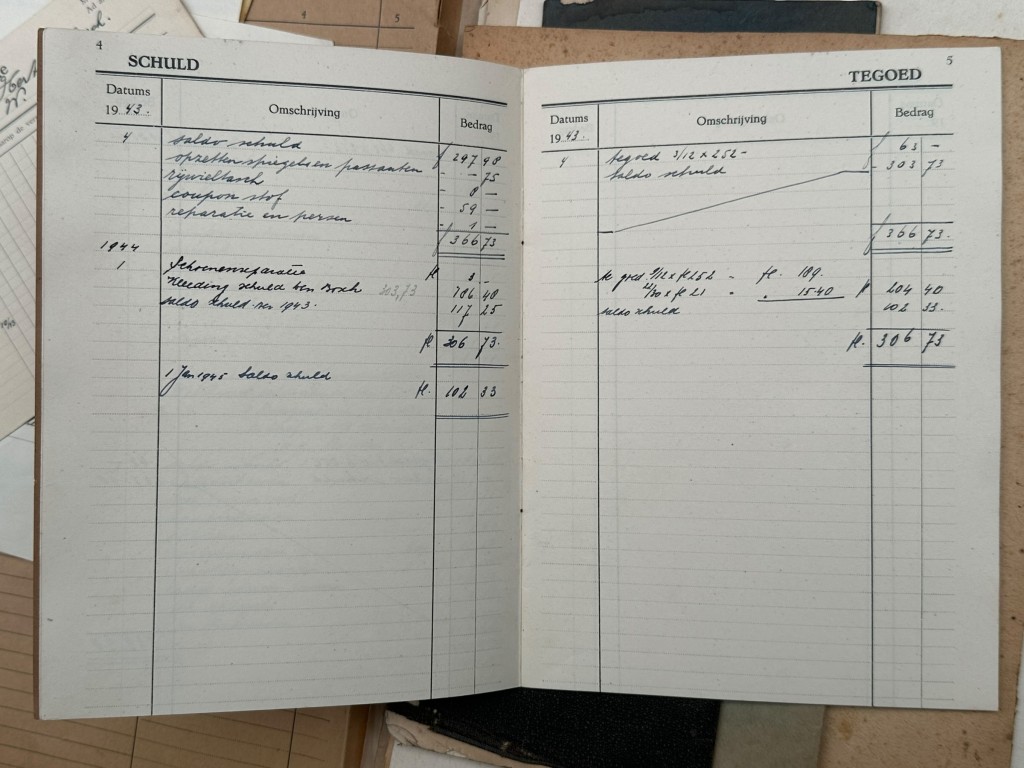 4
SCHULD
Datums
19 43.
Omschrijving
Bedrag
4 saldo schuld f 297 98
opzetten spiegels en passanten - - 75
rijwieltasch - 8 —
coupon stof - 59 —
reparatie en persen - 1 —
f 366 73
1944
1 Schoenenreparatie fl.
Kleeding schuld ten Bosch 303,73 186 40
saldo schuld per 1943. 117 25
fl. 306 73
1 Jan 1945 Saldo schuld
fl. 102 33
5
TEGOED
Datums
19 43.
Omschrijving
Bedrag
4 tegoed 3/12 x 252 - f 63 —
saldo schuld - 303 73
f 366 73.
te goed 9/12 x fl 252 - fl. 189.
22/30 x fl 21 - . 15.40 fl 204 40
saldo schuld 102 33.
fl. 306 73
4
5